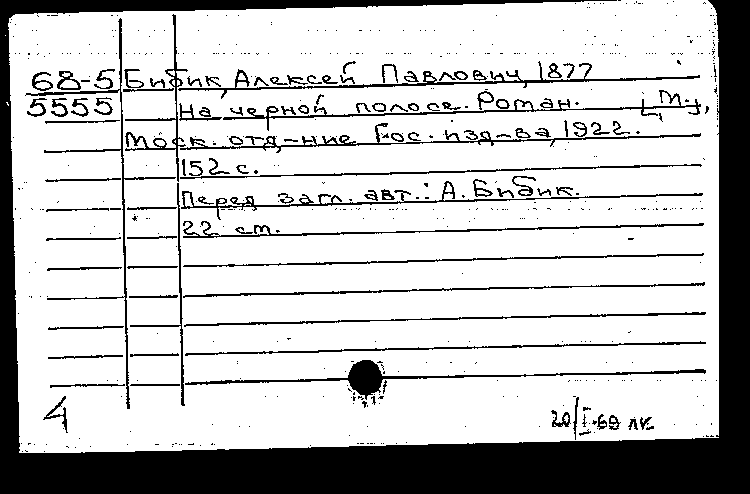 68-5 Бибик, Алексей Павлович, 1877
5555 На черной полосе. Роман. [М.],
Моск. отд-ние Гос. изд-ва, 1922.
152 с.
Перед загл. авт.: А. Бибик.
22 см.
4
20/I-69 лк